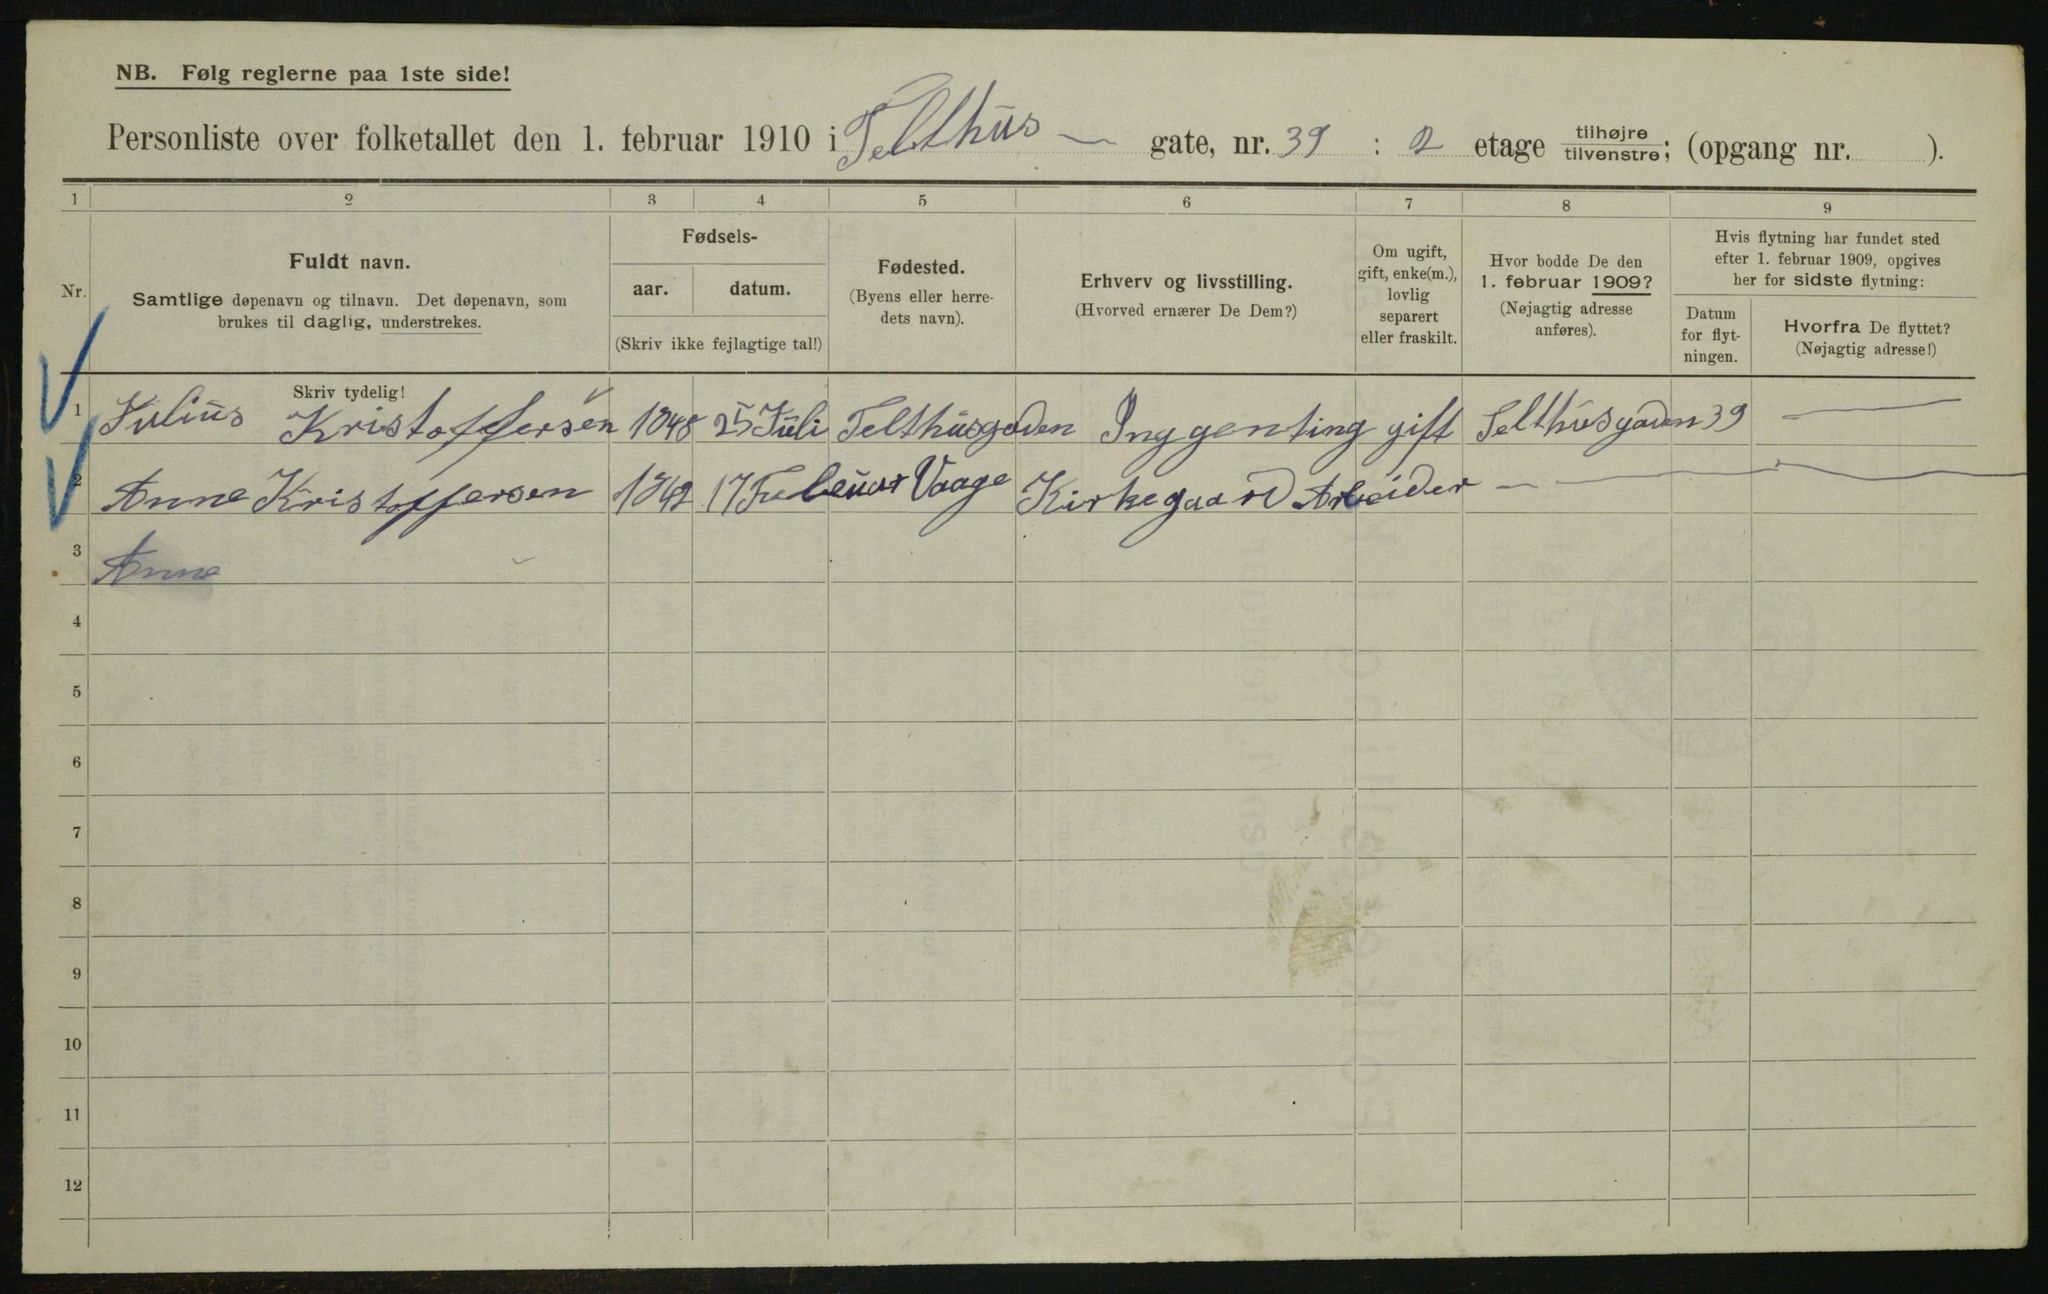 NB. Følg reglerne paa 1ste side!
Personliste over folketallet den 1. februar 1910 i Telthus — gate, nr. 39 : 2 etage tilhøjre/tilvenstre; (opgang nr. ).
1 2 3 4 5 6 7 8 9
Nr.
Fuldt navn.
Samtlige døpenavn og tilnavn. Det døpenavn, som
brukes til daglig, understrekes.
Skriv tydelig!
Fødsels-
aar. datum.
(Skriv ikke fejlagtige tal!)
Fødested.
(Byens eller herre-
dets navn).
Erhverv og livsstilling.
(Hvorved ernærer De Dem?)
Om ugift,
gift, enke(m.),
lovlig
separert
eller fraskilt.
Hvor bodde De den
1. februar 1909?
(Nøjagtig adresse
anføres).
Hvis flytning har fundet sted
efter 1. februar 1909, opgives
her for sidste flytning:
Datum
for flyt-
ningen.
Hvorfra De flyttet?
(Nøjagtig adresse!)
1 Julius Kristoffersen 1848 25 Juli Telthusgaden Inggenting gift Telthusgaden 39 —
2 Anne Kristoffersen 1842 17 Februar Vaage Kirkegaard Arbeider — —
3 Anne
4
5
6
7
8
9
10
11
12